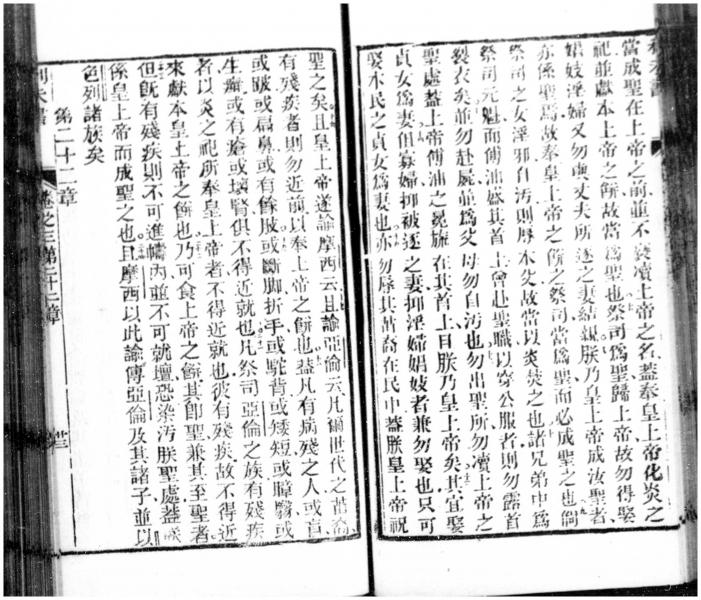 利未書
當成聖在上帝之前並不褻瀆上帝之名蓋奉皇上帝化炎之
祀並獻本上帝之餅故當為聖也祭司為聖歸上帝故勿得娶
娼妓淫婦又勿與丈夫所逐之妻結親朕乃皇上帝成汝聖者
亦係聖焉故奉皇上帝之餅之祭司當為聖而必成聖之也倘
祭司之女淫邪自污則辱本父故當以炎焚之也諸兄弟中為
祭司元魁而傅油於其首上曾赴聖職以穿公服者則勿露首
裂衣矣並勿赴屍並為父母勿自污也勿出聖所勿瀆上帝之
聖處蓋上帝傅油之冕旒在其首上曰朕乃皇上帝矣其宜娶
貞女為妻但寡婦抑被逐之妻抑淫婦娼妓者兼勿娶也只可
娶本民之貞女為妻也亦勿辱其苗裔在民中蓋朕皇上帝祝
聖之矣且皇上帝遂諭摩西云且諭亞倫云凡爾世代之苗裔
有殘疾者則勿近前以奉上帝之餅也蓋凡有病殘之人或盲
或跛或扁鼻或有餘肢或斷脚折手或駝背或矮短或矇或
生癬或有瘡或壞腎俱不得近就也凡祭司亞倫之族有殘疾
者以炎之祀所奉皇上帝者不得近就也彼有殘疾故不得近
來獻本皇上帝之餅也乃可食上帝之餅其即聖兼其至聖者
但既有殘疾則不可進幬內並不可就壇恐染污朕聖處蓋朕
係皇上帝而成聖之也且摩西以此諭傳亞倫及其諸子並以
色列諸族矣
第二十二章
利未書
卷之三第二十二章